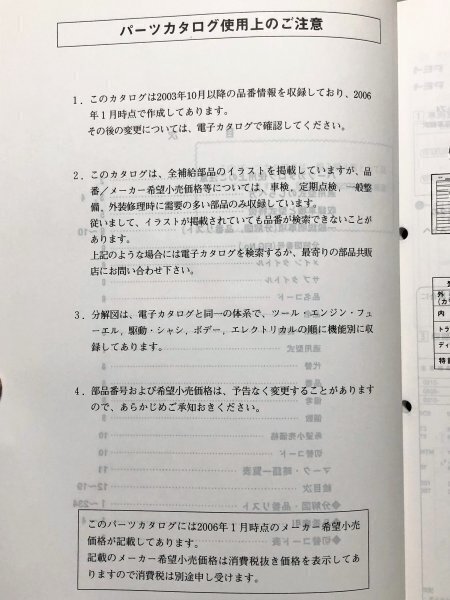 パーツカタログ使用上のご注意
1．このカタログは2003年10月以降の品番情報を収録しており、2006
年1月時点で作成してあります。
その後の変更については、電子カタログで確認してください。
2．このカタログは、全補給部品のイラストを掲載していますが、品
番／メーカー希望小売価格等については、車検、定期点検、一般整
備、外装修理時に需要の多い部品のみ収録しています。
従いまして、イラストが掲載されていても品番が検索できないことが
あります。
上記のような場合には電子カタログを検索するか、最寄りの部品共販
店にお問い合わせ下さい。
3．分解図は、電子カタログと同一の体系で、ツール・エンジン・フ
ューエル，駆動・シャシ，ボデー，エレクトリカルの順に機能別に収
録してあります。
4．部品番号および希望小売価格は、予告なく変更することがあります
ので、あらかじめご承知おきください。
このパーツカタログには2006年1月時点のメーカー希望小売
価格が記載してあります。
記載のメーカー希望小売価格は消費税抜き価格を表示してあ
りますので消費税は別途申し受けます。
外
内
トラ
ディ
特